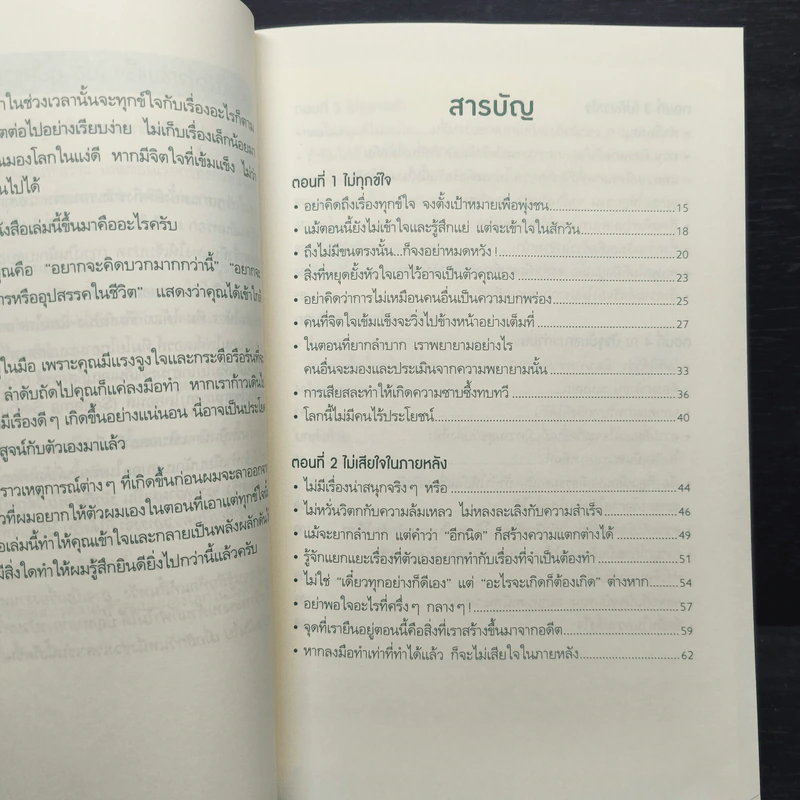 าในช่วงเวลานั้นจะทุกข์ใจกับเรื่องอะไรก็ตาม
ตต่อไปอย่างเรียบง่าย ไม่เก็บเรื่องเล็กน้อยมา
นมองโลกในแง่ดี หากมีจิตใจที่เข้มแข็ง ไม่ว่า
นไปได้
นังสือเล่มนี้ขึ้นมาคืออะไรครับ
คุณคือ “อยากจะคิดบวกมากกว่านี้” “อยากจะ
การหรืออุปสรรคในชีวิต” แสดงว่าคุณได้เข้าใกล้
ในมือ เพราะคุณมีแรงจูงใจและกระตือรือร้นที่จะ
ลำดับถัดไปคุณก็แค่ลงมือทำ หากเราก้าวเดินไป
มีเรื่องดีๆ เกิดขึ้นอย่างแน่นอน นี่อาจเป็นประโยค
สูจน์กับตัวเองมาแล้ว
ราวเหตุการณ์ต่างๆ ที่เกิดขึ้นก่อนผมจะลาออกจา
วที่ผมอยากให้ตัวผมเองในตอนที่เอาแต่ทุกข์ใจ
อเล่มนี้ทำให้คุณเข้าใจและกลายเป็นพลังผลักดัน
มีสิ่งใดทำให้ผมรู้สึกยินดียิ่งไปกว่านี้แล้วครับ
สารบัญ
ตอนที่ 1 ไม่ทุกข์ใจ
• อย่าคิดถึงเรื่องทุกข์ใจ จงตั้งเป้าหมายเพื่อพุ่งชน 15
• แม้ตอนนี้ยังไม่เข้าใจและรู้สึกแย่ แต่จะเข้าใจในสักวัน 18
• ถึงไม่มีขนตรงนั้น...ก็จงอย่าหมดหวัง! 20
• สิ่งที่หยุดยั้งหัวใจเอาไว้อาจเป็นตัวคุณเอง 23
• อย่าคิดว่าการไม่เหมือนคนอื่นเป็นความบกพร่อง 25
• คนที่จิตใจเข้มแข็งจะวิ่งไปข้างหน้าอย่างเต็มที่ 27
• ในตอนที่ยากลำบาก เราพยายามอย่างไร
คนอื่นจะมองและประเมินจากความพยายามนั้น 33
• การเสียสละทำให้เกิดความซาบซึ้งทบทวี 36
• โลกนี้ไม่มีคนไร้ประโยชน์ 40
ตอนที่ 2 ไม่เสียใจในภายหลัง
• ไม่มีเรื่องน่าสนุกจริงๆ หรือ 44
• ไม่หวั่นวิตกกับความล้มเหลว ไม่หลงละเลิงกับความสำเร็จ 46
• แม้จะยากลำบาก แต่คำว่า “อีกนิด” ก็สร้างความแตกต่างได้ 49
• รู้จักแยกแยะเรื่องที่ตัวเองอยากทำกับเรื่องที่จำเป็นต้องทำ 51
• ไม่ใช่ “เดี๋ยวทุกอย่างก็ดีเอง” แต่ “อะไรจะเกิดก็ต้องเกิด” ต่างหาก 54
• อย่าพอใจอะไรที่ครึ่งๆ กลางๆ! 57
• จุดที่เรายืนอยู่ตอนนี้คือสิ่งที่เราสร้างขึ้นมาจากอดีต 59
• หากลงมือทำเท่าที่ทำได้แล้ว ก็จะไม่เสียใจในภายหลัง 62